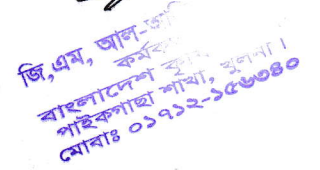 জি,এম, আল-
কর্মক
বাংলাদেশ কৃষি
পাইকগাছা শাখা, খুলনা।
মোবাঃ ০১৭১২-১৫৬৩৪০